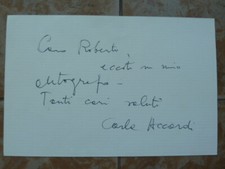 Caro Roberto,
eccoti un mio
autografo -
Tanti cari saluti
Carla Accardi